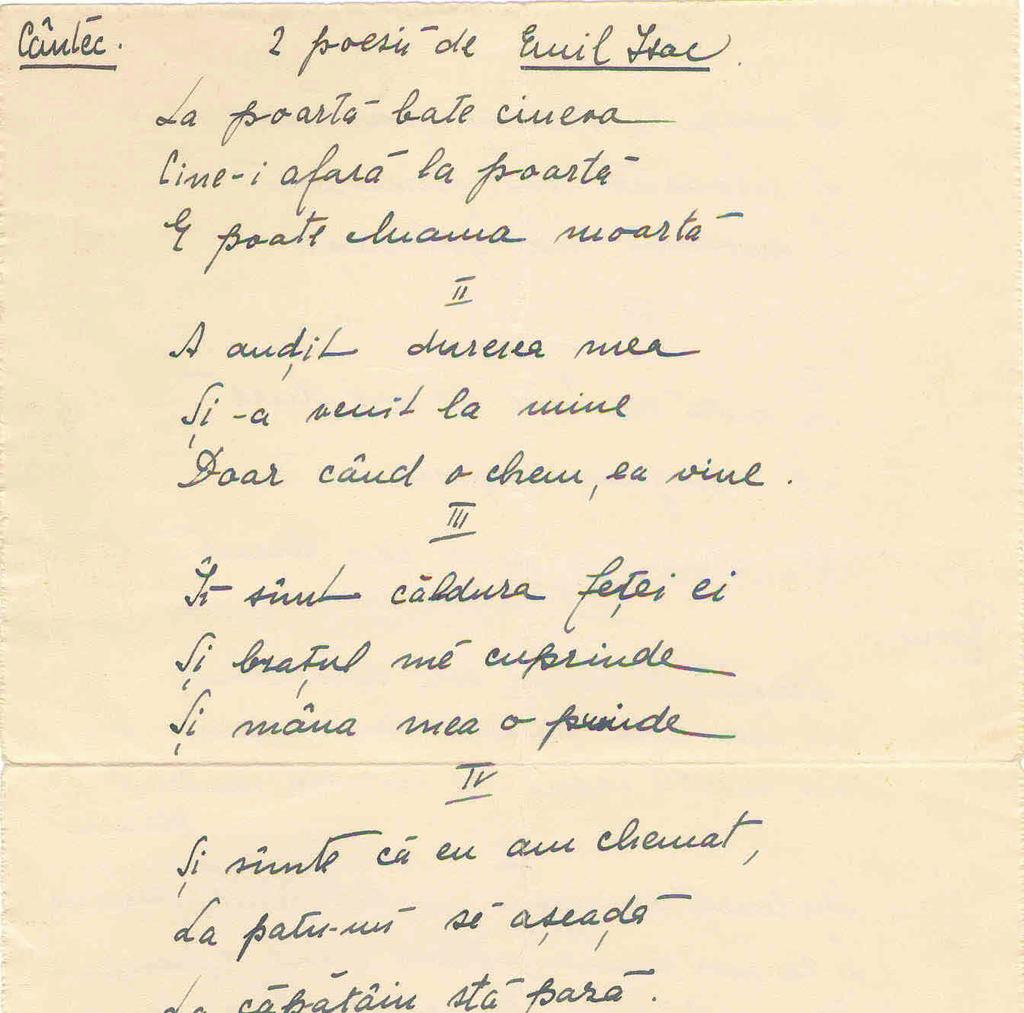 Cântec. 2 poesii de Emil Isac.
La poartă bate cineva
Cine-i afară la poartă
E poate Mama moartă
II
A audįt durerea mea
Și-a venit la mine
Doar când o chem, ea vine.
III
Îi sîmt căldura feței ei
Și brațul mĕ cuprinde
Și mâna mea o prinde
IV
Și sîmte că eu am chemat,
La patu-mi sĕ așeadă
La căpătâiu stă pază.